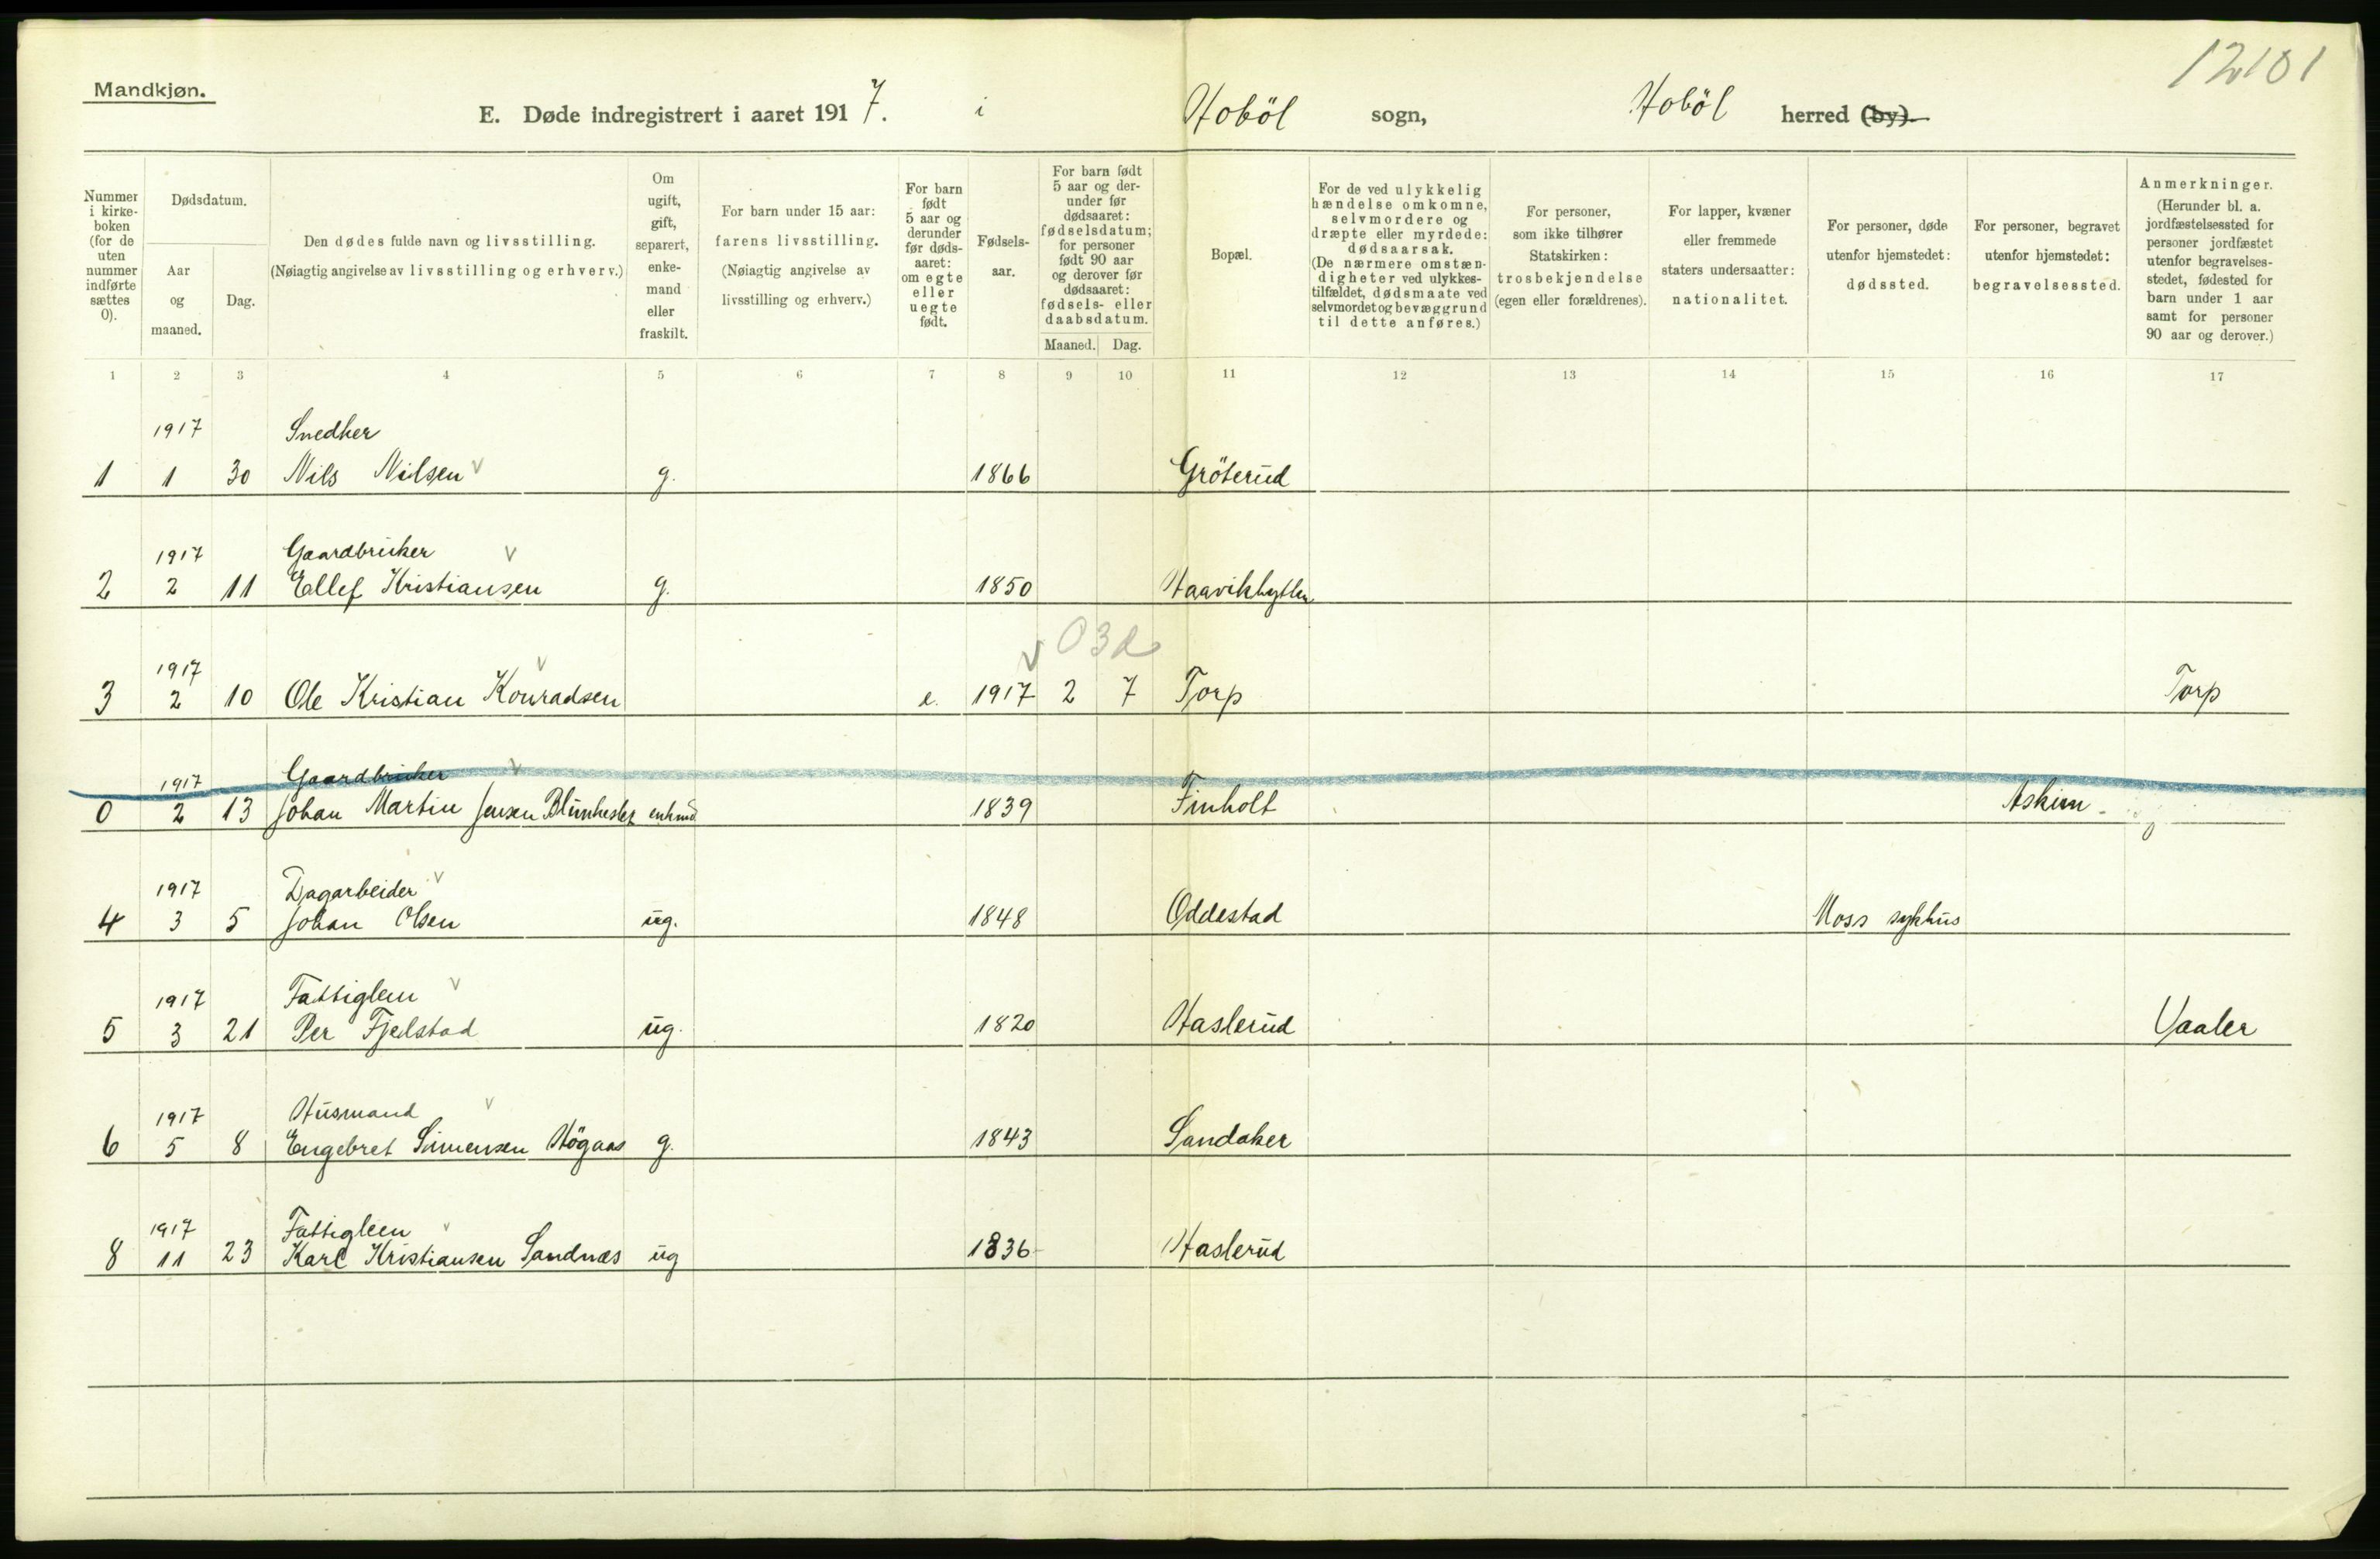 12101
Mandkjøn.
E. Døde indregistrert i aaret 1917. i Hoböl sogn, Hoböl herred (by).
Nummer i kirke- boken (for de uten nummer indførte sættes 0).
Dødsdatum.
Aar og maaned.
Dag.
Den dødes fulde navn og livsstilling.
(Nøiagtig angivelse av livsstilling og erhverv.)
Om ugift, gift, separert, enke- mand eller fraskilt.
For barn under 15 aar: farens livsstilling. (Nøiagtig angivelse av livsstilling og erhverv.)
For barn født 5 aar og derunder før døds- aaret: om egte eller uegte født.
Fødsels- aar.
For barn født 5 aar og der- under før dødsaaret: fødselsdatum; for personer født 90 aar og derover før dødsaaret: fødsels- eller daabsdatum.
Maaned. Dag.
Bopæl.
For de ved ulykkelig hændelse omkomne, selvmordere og dræpte eller myrdede: dødsaarsak. (De nærmere omstæn- digheter ved ulykkes- tilfældet, dødsmaate ved selvmordet og bevæggrund til dette anføres.)
For personer, som ikke tilhører Statskirken: trosbekjendelse (egen eller forældrenes).
For lapper, kvæner eller fremmede staters undersaatter: nationalitet.
For personer, døde utenfor hjemstedet: dødssted.
For personer, begravet utenfor hjemstedet: begravelsessted.
Anmerkninger. (Herunder bl. a. jordfæstelsessted for personer jordfæstet utenfor begravelses- stedet, fødested for barn under 1 aar samt for personer 90 aar og derover.)
1 2 3 4 5 6 7 8 9 10 11 12 13 14 15 16 17
1917 Snedker
1 1 30 Nils Nilsen g. 1866 Gröterud
1917 Gaardbruker
2 2 11 Ellef Kristiansen g. 1850 Haavikhytten
03d
1917
3 2 10 Ole Kristian Konradsen e. 1917 2 7 Torp Torp
1917 Gaardbruker
0 2 13 Johan Martin Jensen enkmd 1839 Finholt Askim
1917 Dagarbeider
4 3 5 Johan Olsen ug. 1848 Oddestad Moss sykhus
1917 Fattiglem
5 3 21 Per Fjelstad ug. 1820 Haslerud Vaaler
1917 Husmand
6 5 8 Engebret Simensen Högaas g. 1843 Sandaker
1917 Fattiglem
8 11 23 Karl Kristiansen Sandnæs ug 1836 Haslerud